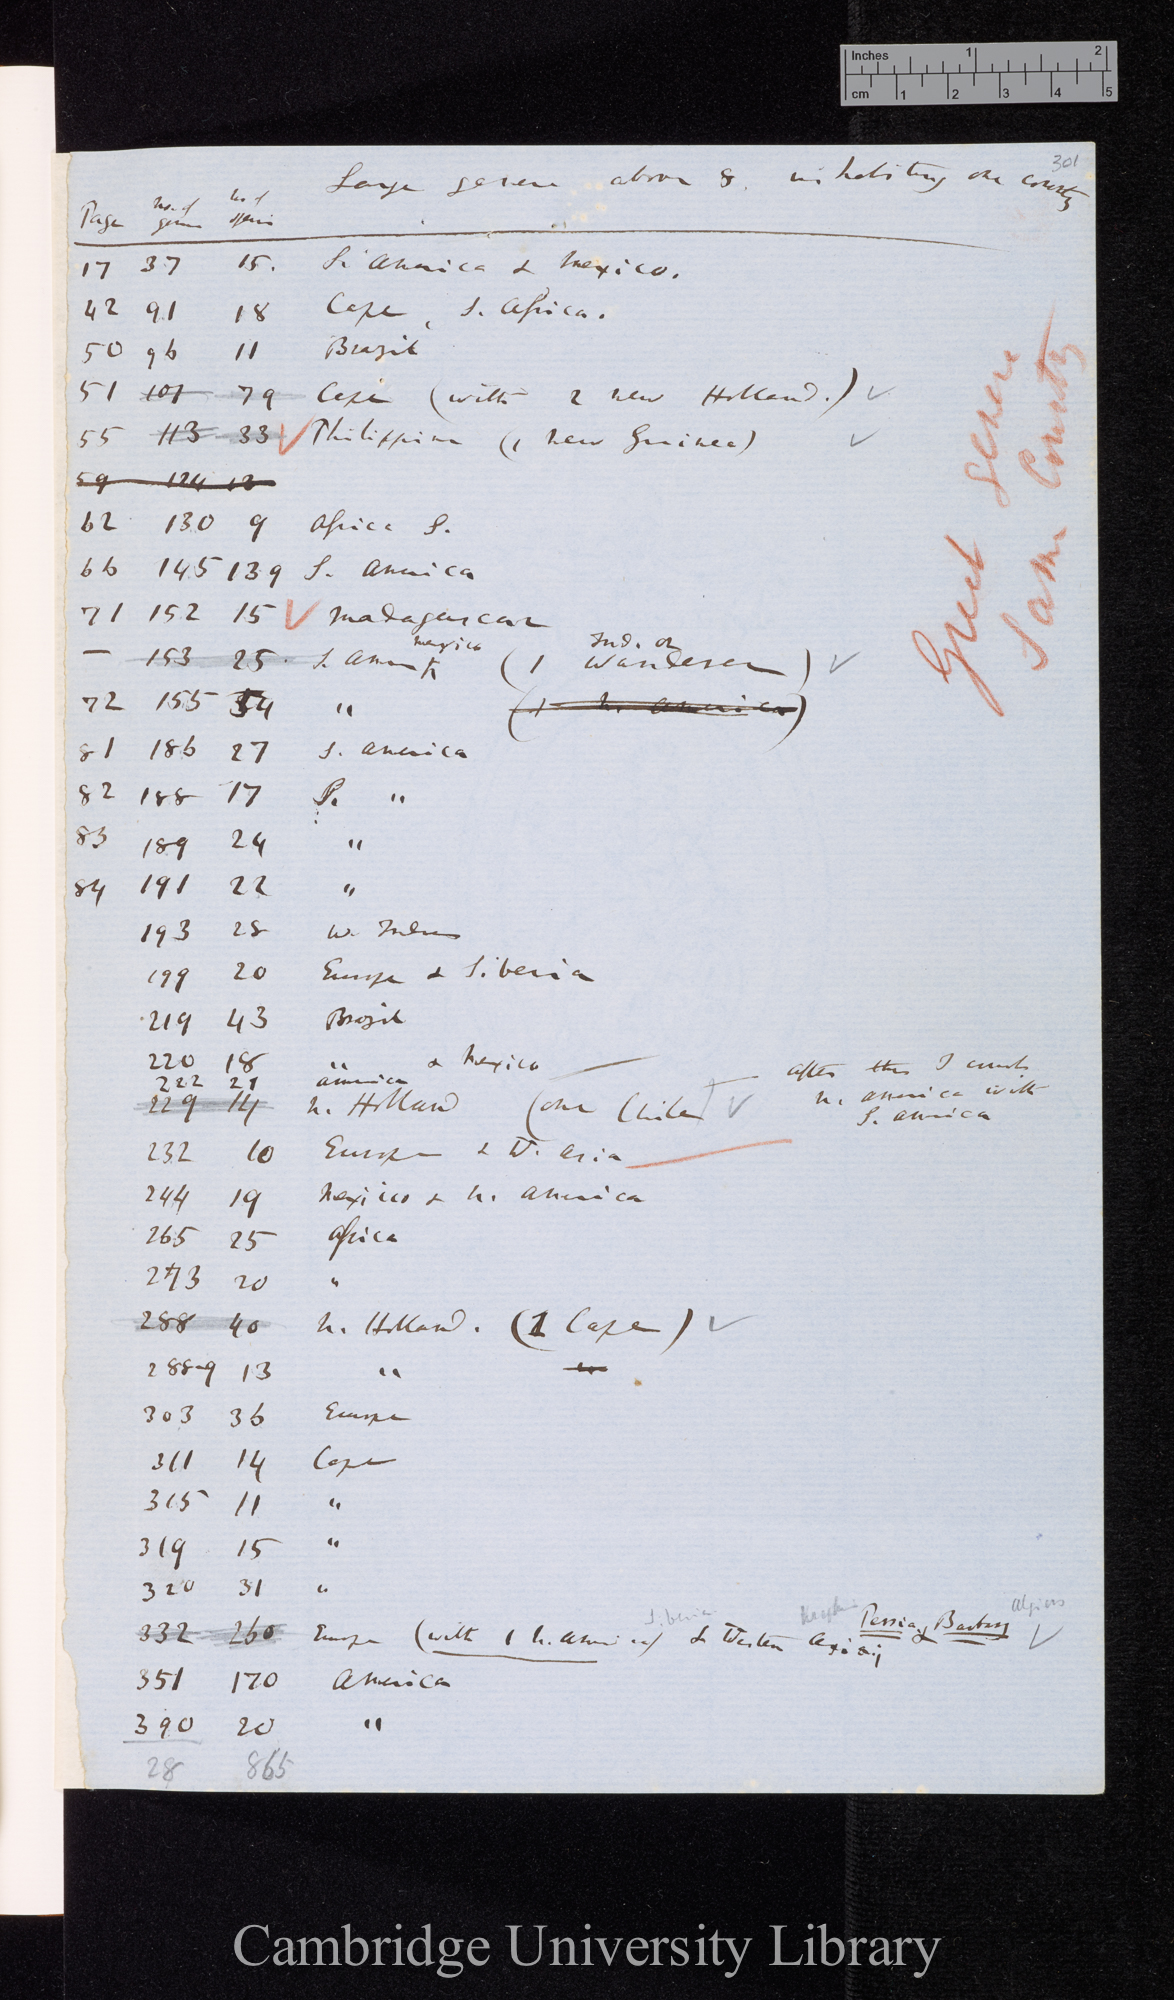 Inches 1 2
cm 1 2 3 4 5
301
Large genera above 8. inhabiting one country
Page No. of genus No of species
17 37 15. S. America & Mexico.
42 91 18 Cape, S. Africa.
50 96 11 Brazil
51 101 79 Cape (with 2 New Holland.) ✓
55 113 33 ✓ Philippines (1 New Guinea) ✓
59 124 12
62 130 9 Africa S.
66 145 139 S. America
71 152 15 ✓ Madagascar
Mexico Ind. on
— 153 25. S. Amer (1 Wanderer) ✓
72 155 34 " (1 N. America)
81 186 27 S. America
82 188 17 S. "
83 189 24 "
84 191 22 "
193 28 W. Indies
199 20 Europe & Siberia
219 43 Brazil
220 18 " & Mexico —
222 21 America
229 14 N. Holland (one Chile) ✓
after this I count
N. America with
S. America
232 10 Europe & W. Asia
244 19 Mexico & N. America
265 25 Africa
273 20 "
288 40 N. Holland. (1 Cape) ✓
288-9 13 "
303 36 Europe
311 14 Cape
315 11 "
319 15 "
320 31 "
Siberia Algiers
332 260 Europe (with 1 N. America) & Western Asia Persia, Barbary ✓
351 170 America
390 20 "
28 865
Great Genera
Same Country
Cambridge University Library